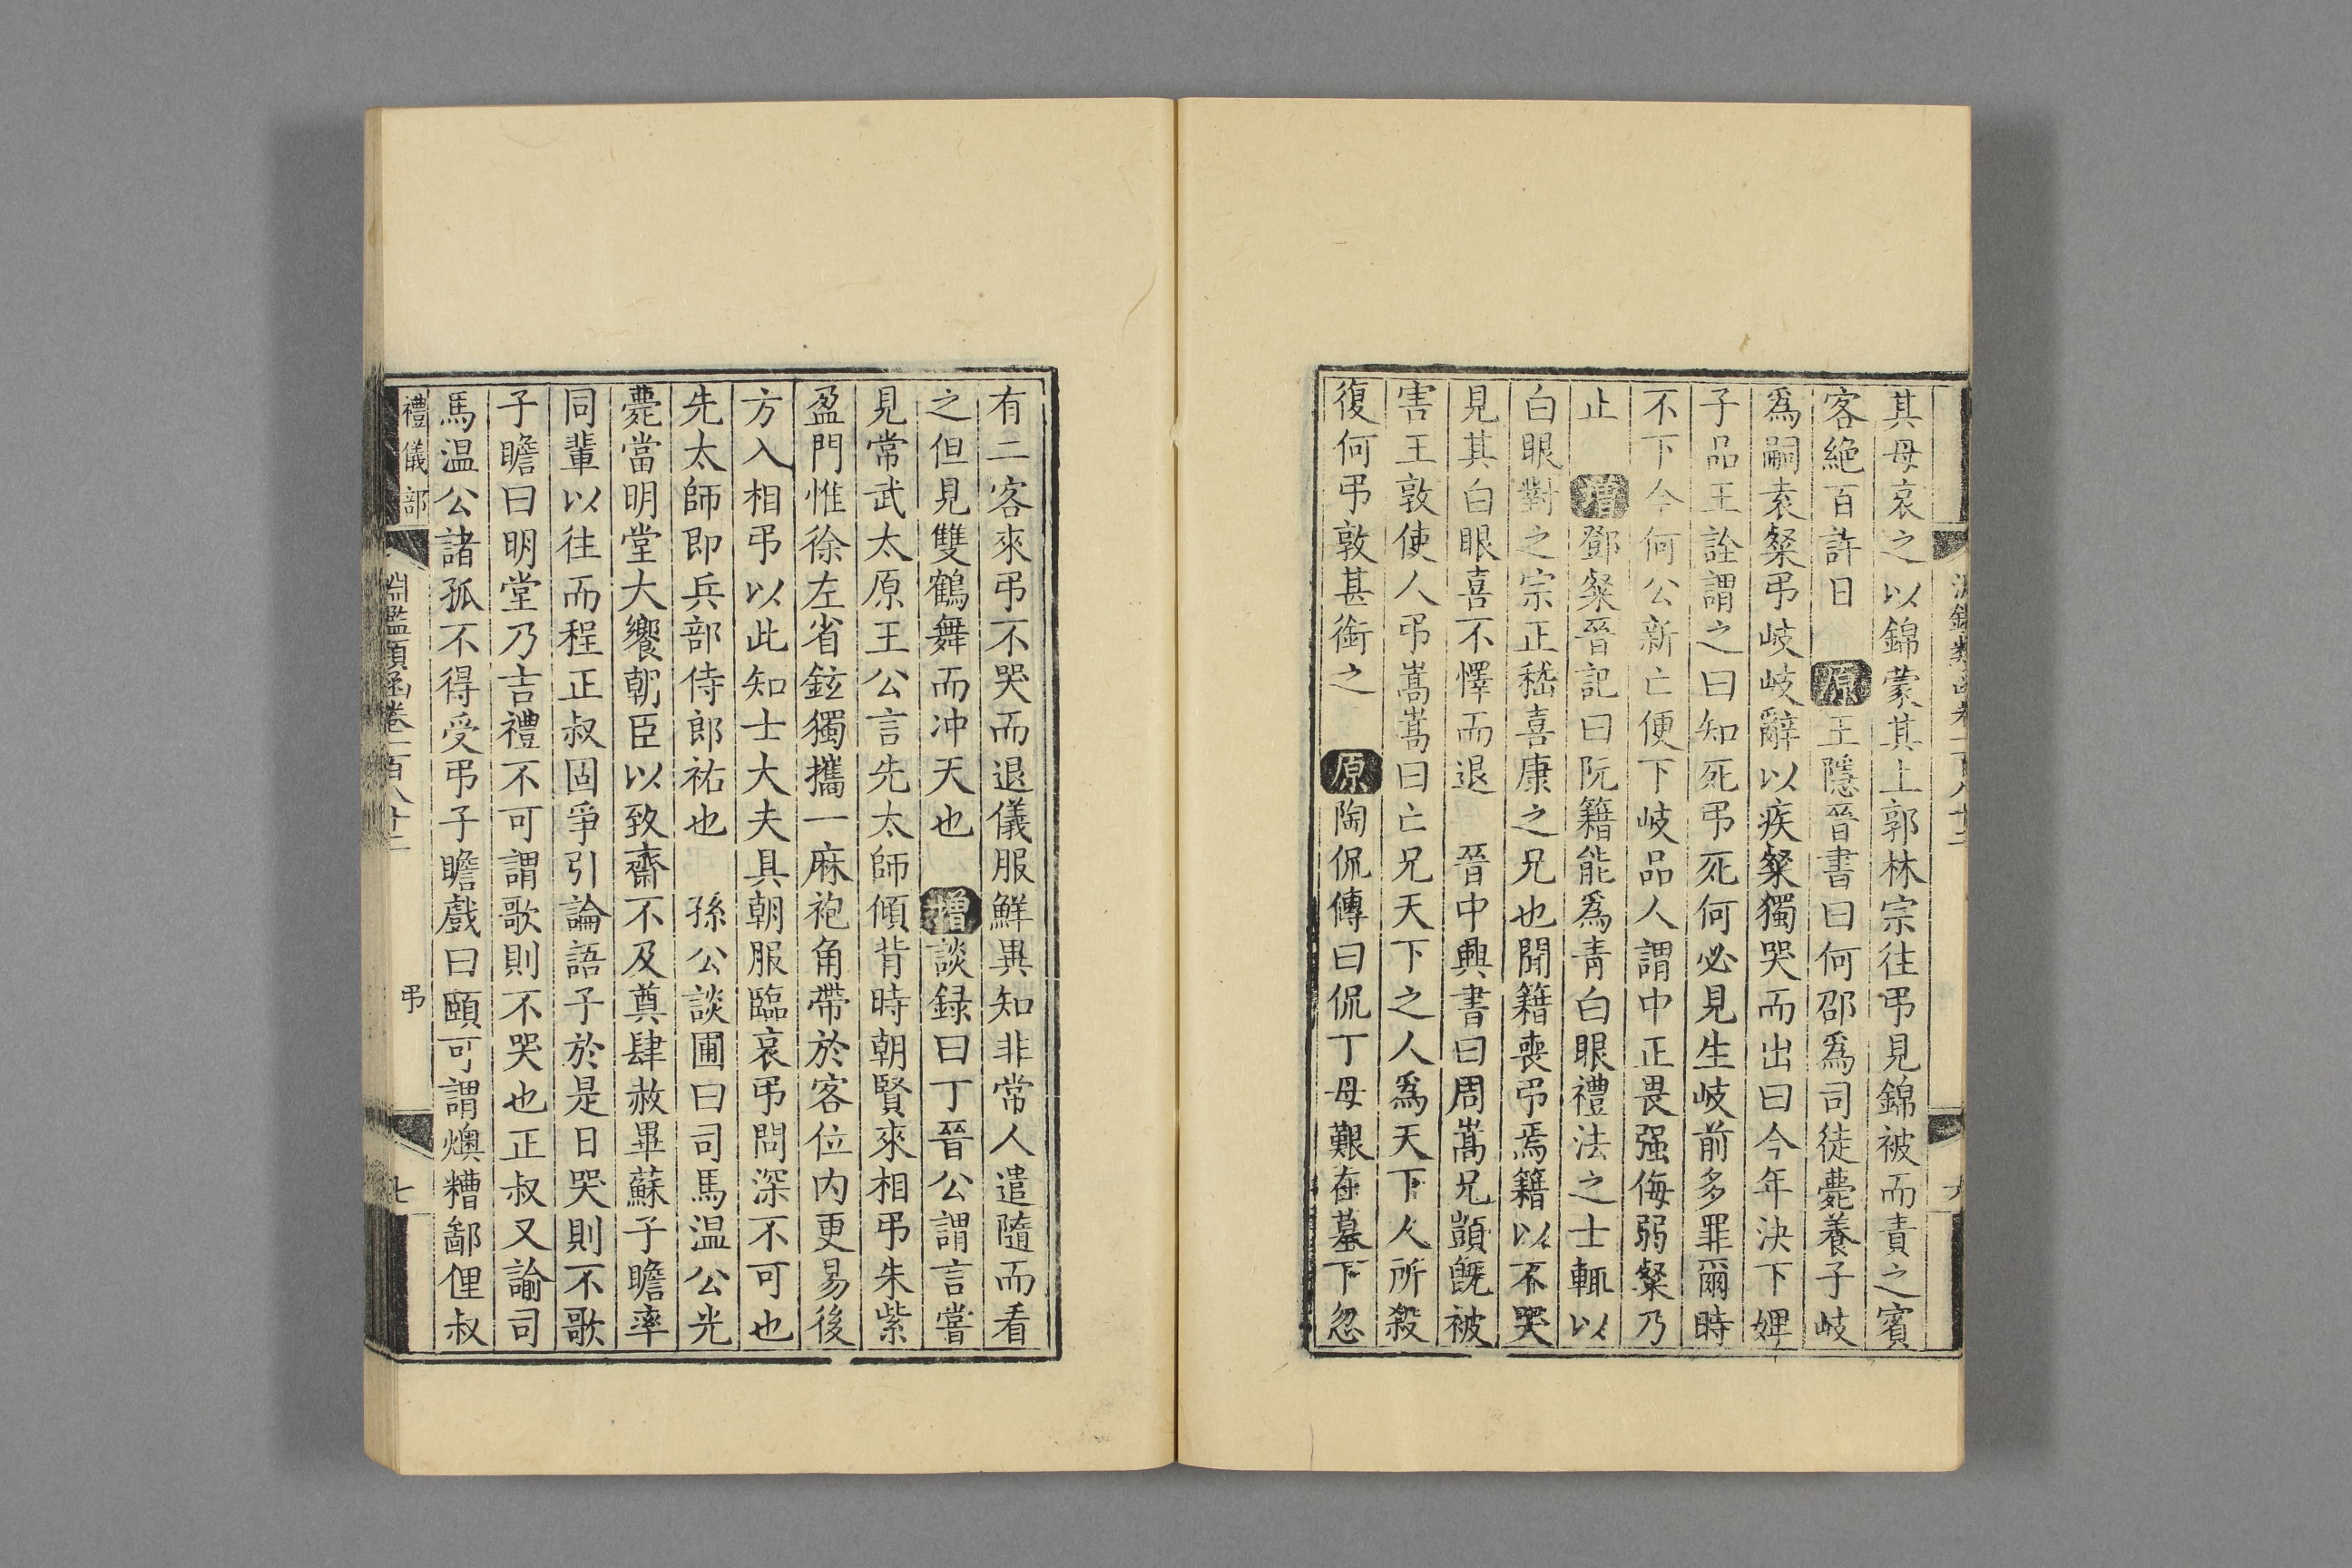 其母哀之以錦蒙其上郭林宗往弔見錦被而責之賓
客絶百許日 原 王隱晉書曰何邵爲司徒薨養子岐
爲嗣袁粲弔岐岐辭以疾粲獨哭而出曰今年決下婢
子品王詮謂之曰知死弔死何必見生岐前多罪爾時
不下今何公新亡便下岐品人謂中正畏强侮弱粲乃
止 增 鄧粲晉記曰阮籍能爲青白眼禮法之士輒以
白眼對之宗正嵇喜康之兄也聞籍喪弔焉籍以不哭
見其白眼喜不懌而退 晉中興書曰周嵩兄顗旣被
害王敦使人弔嵩嵩曰亡兄天下之人爲天下人所殺
復何弔敦甚銜之 原 陶侃傳曰侃丁母艱在墓下忽
有二客來弔不哭而退儀服鮮異知非常人遣隨而看
之但見雙鶴舞而冲天也 增 談録曰丁晉公謂言嘗
見常武太原王公言先太師傾背時朝賢來相弔朱紫
盈門惟徐左省鉉獨攜一麻袍角帶於客位内更易後
方入相弔以此知士大夫具朝服臨哀弔問深不可也
先太師即兵部侍郎祐也 孫公談圃曰司馬温公光
薨當明堂大饗朝臣以致齋不及奠肆赦畢蘇子瞻率
同輩以往而程正叔固爭引論語子於是日哭則不歌
子瞻曰明堂乃吉禮不可謂歌則不哭也正叔又諭司
馬温公諸孤不得受弔子瞻戲曰頤可謂燠糟鄙俚叔
禮儀部 淵鑑類函卷一百八十二 弔 七